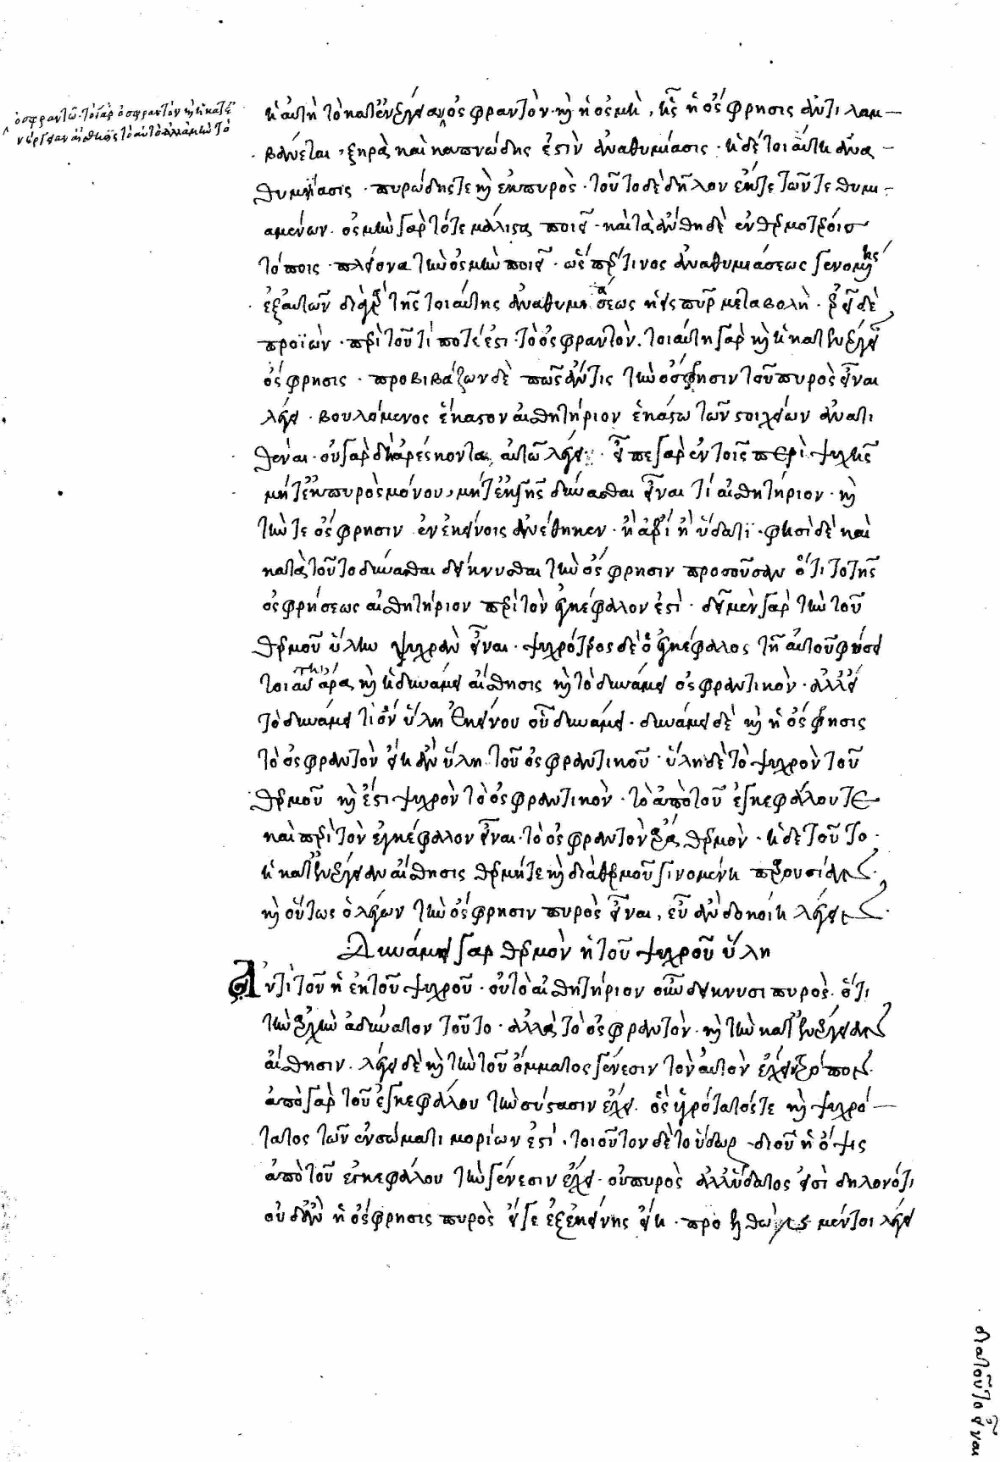 ὀσφραντῶ· τὸ γὰρ ὀσφραντὸν καὶ ἡ κατ'
ἐνέργειαν αἴσθησις τὸ αὐτὸ ἀλλὰ μὴν τὸ
ἡ αὐτὴ τὸ κατ' ἐνέργειαν ὀσφραντὸν· καὶ ἡ ὀσμὴ, ἧς ἡ ὄσφρησις ἀντιλαμ-
βάνεται, ξηρὰ καὶ καπνώδης ἐστὶν ἀναθυμίασις· ἡ δὲ τοιαύτη ἀνα-
θυμίασις· πυρώδης τε καὶ ἐκ πυρὸς· τοῦτο δὲ δῆλον ἔκ τε τῶν τε θυμι-
αμένων· ὀσμὴν γὰρ τότε μάλιστα ποιεῖ· καὶ τὰ ἄνθη δὲ ἐν θερμοτέροις
τόποις· πλείονα τὴν ὀσμὴν ποιεῖ· ὡς πέρ τινος ἀναθυμιάσεως γενομένης
ἐξ αὐτῶν διὰ τῆς τοιαύτης ἀναθυμιάσεως ἡ εἰς πῦρ μεταβολὴ· ἐρεῖ δὲ
προϊὼν· περὶ τοῦ τί ποτέ ἐστι τὸ ὀσφραντὸν. τοιαύτη γὰρ καὶ ἡ κατ' ἐνέργειαν
ὄσφρησις· προβιβάζων δὲ πῶς ἄν τις τὴν ὄσφρησιν τοῦ πυρὸς εἶναι
λέγει· βουλόμενος ἕκαστον αἰσθητήριον ἑκάστω τῶν στοιχείων ἀνατι
θέναι· οὐ γὰρ δὴ ἀρέσκοντα αὐτῶ λέγει· εἶπε γὰρ ἐν τοῖς περὶ ψυχῆς
μήτ' ἐκ πυρὸς μόνου, μήτ' ἐκ γῆς δύνασθαι εἶναι τί αἰσθητήριον· καὶ
τήν τε ὄσφρησιν ἐν ἐκείνοις ἀνέθηκεν· ἢ ἀέρι ἢ ὕδατι· φησὶ δὲ καὶ
κατὰ τοῦτο δύνασθαι δείκνυσθαι τὴν ὄσφρησιν προσοῦσαν ὅτι τὸ τῆς
ὀσφρήσεως αἰσθητήριον περὶ τὸν ἐγκέφαλον ἐστὶ· δεῖ μὲν γὰρ τὴν τοῦ
θερμοῦ ὕλην ψυχρὰν εἶναι· ψυχρότερος δὲ ὁ ἐγκέφαλος τῆ αὐτοῦ φύσει
τοιαύτη ἄρα καὶ ἡ δυνάμει αἴσθησις καὶ τὸ δυνάμει ὀσφραντικὸν· ἀλλ' εἰ
τὸ δυνάμει τὶ ὂν ὕλη ἐκείνου οὗ δυνάμει· δυνάμει δὲ καὶ ἡ ὄσφρησις
τὸ ὀσφραντὸν εἴη ἂν ὕλη τοῦ ὀσφραντικοῦ· ὕλη δὲ τὸ ψυχρὸν τοῦ
θερμοῦ καὶ ἔστι ψυχρὸν τὸ ὀσφραντικὸν· τὸ ἀπὸ τοῦ ἐγκεφάλου τε
καὶ περὶ τὸν ἐγκέφαλον εἶναι· τὸ ὀσφραντὸν ἄρα θερμὸν· ἡ δὲ τούτου
ἡ κατ' ἐνέργειαν αἴσθησις θερμή τε καὶ διὰ θερμοῦ γινομένη παρουσίας
καὶ οὕτως ὁ λέγων τὴν ὄσφρησιν πυρὸς εἶναι, εὖ ἂν δοκοίη λέγειν
Δυνάμει γὰρ θερμὸν ἡ τοῦ ψυχροῦ ὕλη
Ἀντὶ τοῦ ἡ ἐκ τοῦ ψυχροῦ· οὐ τὸ αἰσθητήριον οὖν δείκνυσι πυρὸς· ὅτι
τὴν ἀρχὴν ἀδύνατον τοῦτο· ἀλλὰ τὸ ὀσφραντὸν· καὶ τὴν κατ' ἐνέργειαν
αἴσθησιν. λέγει δὲ καὶ τὴν τοῦ ὄμματος γένεσιν τὸν αὐτὸν ἔχειν τρόπον
ἀπὸ γὰρ τοῦ ἐγκεφάλου τὴν σύστασιν ἔχει. ὃς ὑγρότατός τε καὶ ψυχρό-
τατος τῶν ἐν σώματι μορίων ἐστὶ, τοιοῦτον δὲ τὸ ὕδωρ διοῦ ἡ ὄψις
ἀπὸ τοῦ ἐγκεφάλου τὴν γένεσιν ἔχει· οὐ πυρὸς ἀλλ' ὕδατος ἐστὶ δηλονότι
οὐδ' ἂν ἡ ὄσφρησις πυρὸς εἴ γε ἐξ ἐκείνης εἴη· προ μέντοι λέγει
διὰ τοῦτο εἶναι